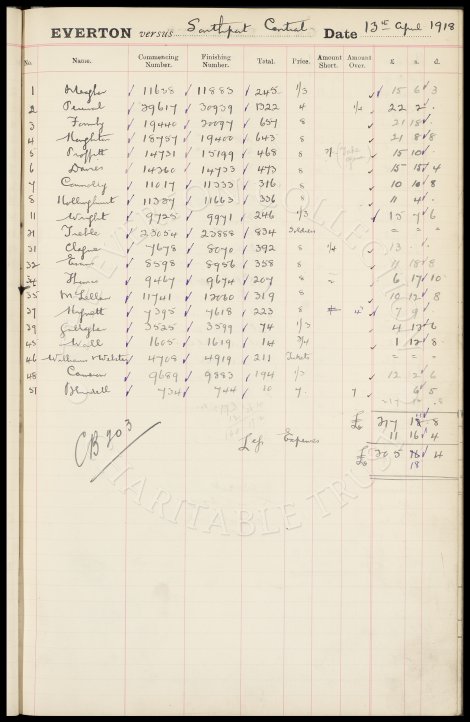 EVERTON versus Southport Central Date 13th April 1918
No. Name. Commencing Number. Finishing Number. Total. Price. Amount Short. Amount Over. £ s. d.
1 11638 11883 245 1/3 15 6 3
2 29617 30939 1322 4 22 2
3 19440 20097 657 8 21 18
4 Houghton 18757 19400 643 8 21 8 8
5 Proffitt 14731 15199 468 8 15 10
6 Davies 14260 14733 473 8 15 15 4
7 Connolly 11017 11333 316 8 10 10 8
8 11327 11663 336 8 11 4
11 Wright 9725 9971 246 1/3 15 7 6
21 Treble 23054 23888 834 Soldiers " " "
31 Clague 7678 8070 392 8 1/4 13
32 Evans 8598 8956 358 8 11 18 8
34 9467 9674 207 8 6 17 10
35 McLellan 11741 12060 319 8 10 12 8
37 Hignett 7395 7618 223 8 7 9
39 Gallagher 3525 3599 74 1/3 4 12 6
45 Wall 1605 1619 14 2/4 1 12 8
46 William Webster 4708 4919 211 Tickets " " "
48 Cannon 9689 9883 194 1/3 12 2 6
51 Blundell 734 744 10 7 7 6 5
£ 317 18 8
Less Expenses 11 16 4
£ 305 16 4
18
CB 203
EVERTON COLLECTION
CHARITABLE TRUST